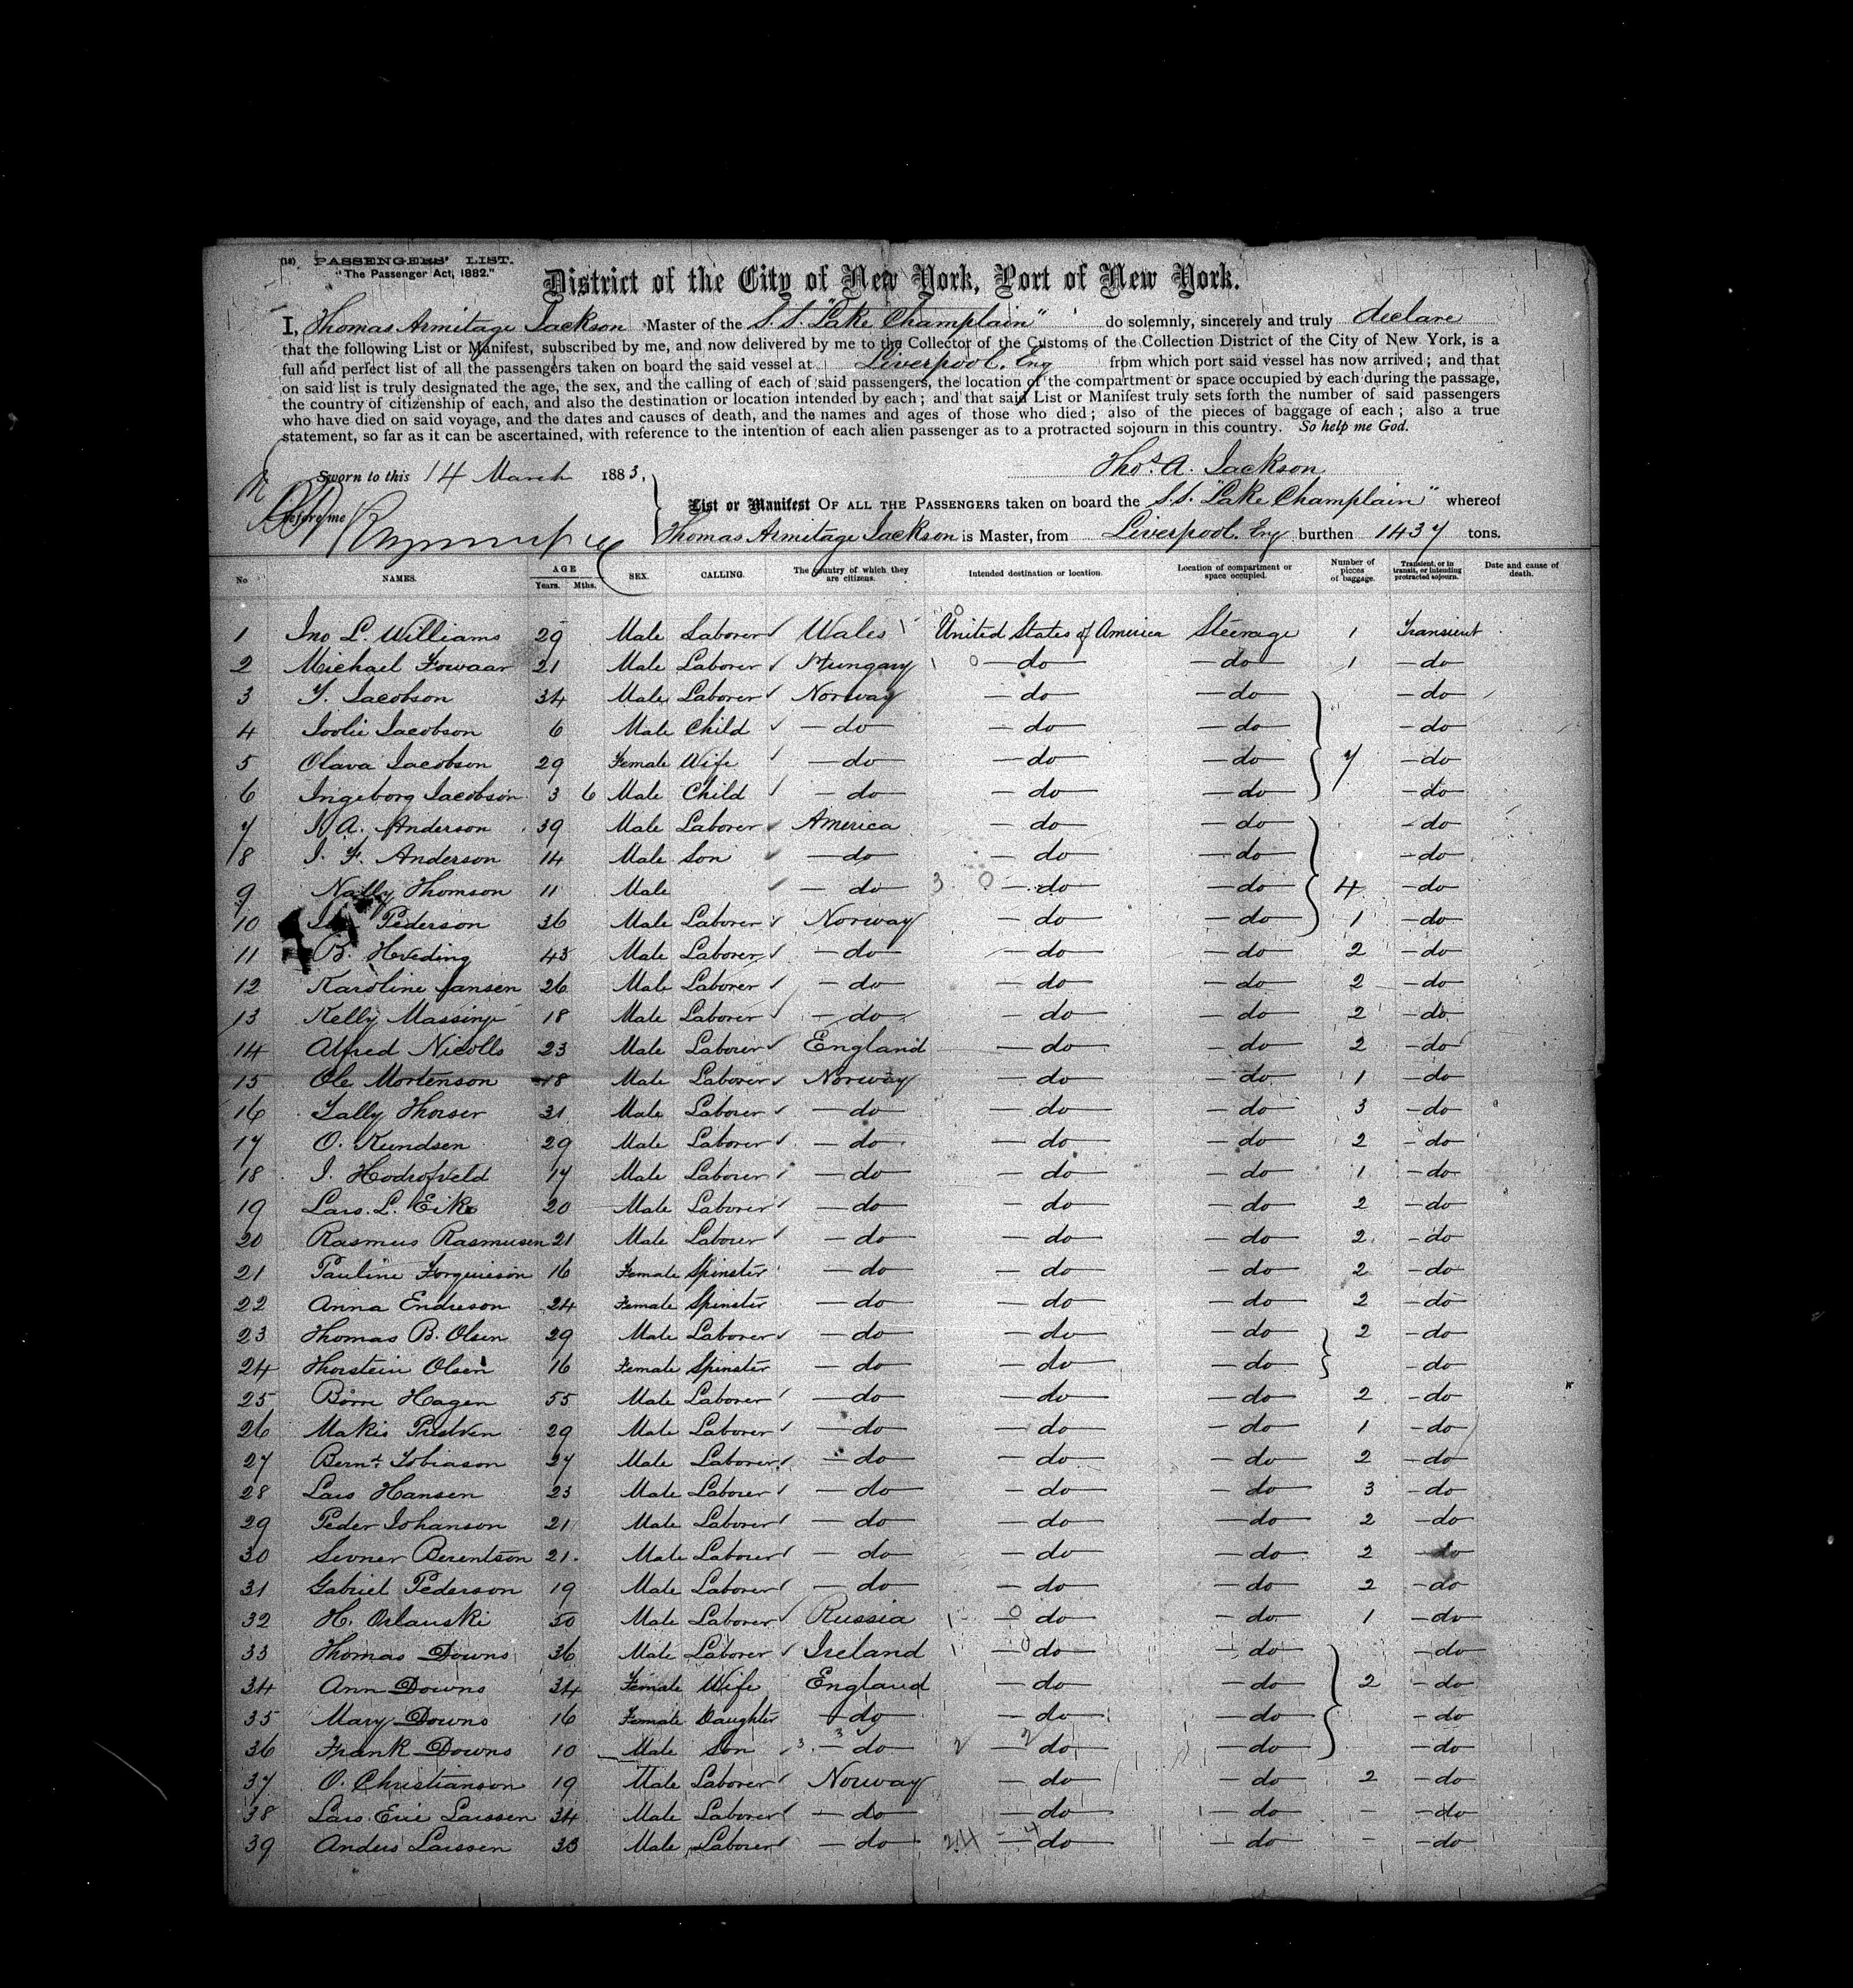 (18) PASSENGERS' LIST.
"The Passenger Act, 1882."
District of the City of New York, Port of New York.
I, Thomas Armitage Jackson Master of the S.S. "Lake Champlain" do solemnly, sincerely and truly declare
that the following List or Manifest, subscribed by me, and now delivered by me to the Collector of the Customs of the Collection District of the City of New York, is a
full and perfect list of all the passengers taken on board the said vessel at Liverpool. Eng from which port said vessel has now arrived; and that
on said list is truly designated the age, the sex, and the calling of each of said passengers, the location of the compartment or space occupied by each during the passage,
the country of citizenship of each, and also the destination or location intended by each; and that said List or Manifest truly sets forth the number of said passengers
who have died on said voyage, and the dates and causes of death, and the names and ages of those who died; also of the pieces of baggage of each; also a true
statement, so far as it can be ascertained, with reference to the intention of each alien passenger as to a protracted sojourn in this country. So help me God.
Sworn to this 14 March 1883, Thos. A. Jackson
before me
List or Manifest OF ALL THE PASSENGERS taken on board the S.S. "Lake Champlain" whereof
Thomas Armitage Jackson is Master, from Liverpool. Eng burthen 1437 tons.
No NAMES. AGE Years. Mths. SEX. CALLING. The country of which they are citizens. Intended destination or location. Location of compartment or space occupied. Number of pieces of baggage. Transient, or in transit, or intending protracted sojourn. Date and cause of death.
1 Jno L. Williams 29 Male Laborer Wales United States of America Steerage 1 Transient
2 Michael Fowaar 21 Male Laborer Hungary do do 1 do
3 T. Jacobson 34 Male Laborer Norway do do do
4 Jacobson 6 Male Child do do do do
5 Olava Jacobson 29 Female Wife do do do 7 do
6 Ingeborg Jacobson 3 6 Male Child do do do do
7 A. Anderson 39 Male Laborer America do do do
8 J. F. Anderson 14 Male Son do do do do
9 Nally Thomson 11 Male do do do 4 do
10 Pederson 36 Male Laborer Norway do do 1 do
11 B. Heveding 43 Male Laborer do do do 2 do
12 Karoline Jansen 26 Male Laborer do do do 2 do
13 Kelly Massinge 18 Male Laborer do do do 2 do
14 Alfred Nicolls 23 Male Laborer England do do 2 do
15 Ole Mortenson 18 Male Laborer Norway do do 1 do
16 Thorser 31 Male Laborer do do do 3 do
17 O. Kundsen 29 Male Laborer do do do 2 do
18 J. 17 Male Laborer do do do 1 do
19 Lars. L. Eike 20 Male Laborer do do do 2 do
20 Rasmus Rasmusen 21 Male Laborer do do do 2 do
21 Pauline 16 Female Spinster do do do 2 do
22 Anna Endreson 24 Female Spinster do do do 2 do
23 Thomas B. Olsen 29 Male Laborer do do do 2 do
24 Thorstein Olsen 16 Female Spinster do do do do
25 Hagen 55 Male Laborer do do do 2 do
26 Makis 29 Male Laborer do do do 1 do
27 Bernt Tobiason 27 Male Laborer do do do 2 do
28 Lars Hansen 23 Male Laborer do do do 3 do
29 Peder Johanson 21 Male Laborer do do do 2 do
30 Berentson 21 Male Laborer do do do 2 do
31 Gabriel Pederson 19 Male Laborer do do do 2 do
32 H. Orlauski 50 Male Laborer Russia do do 1 do
33 Thomas Downs 36 Male Laborer Ireland do do do
34 Ann Downs 34 Female Wife England do do 2 do
35 Mary Downs 16 Female Daughter do do do do
36 Frank Downs 10 Male Son do do do do
37 O. Christianson 19 Male Laborer Norway do do 2 do
38 Lars Eric Larssen 34 Male Laborer do do do - do
39 Anders Larssen 33 Male Laborer do do do - do